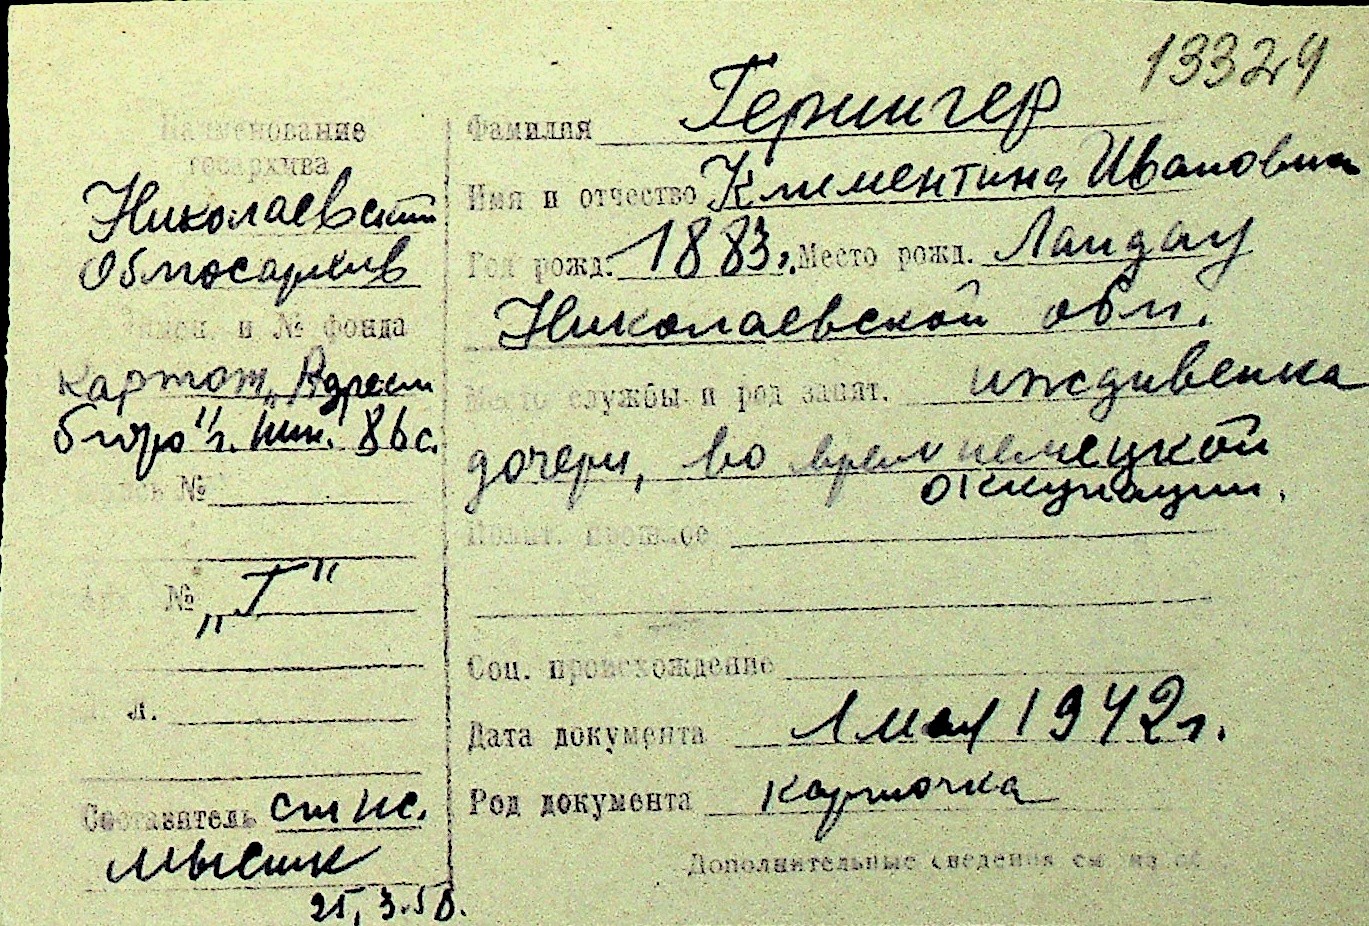 13324
Наименование
госархива
Николаевский
Облгосархив
и № фонда
картот. „Адресн
бюро" г. Ник. 86с.
№
№ „Г"
л.
Составитель ст. нс.
Мысик
25.3.50.
Фамилия Герингер
Имя и отчество Климентина Ивановна
Год рожд. 1883. Место рожд. Ландау
Николаевской обл.
Место службы и род занят. иждивенка
дочери, во время немецкой
оккупации.
Полит. прошлое
Соц. происхождение
Дата документа 1 мая 1942 г.
Род документа карточка
Дополнительные сведения см. на об